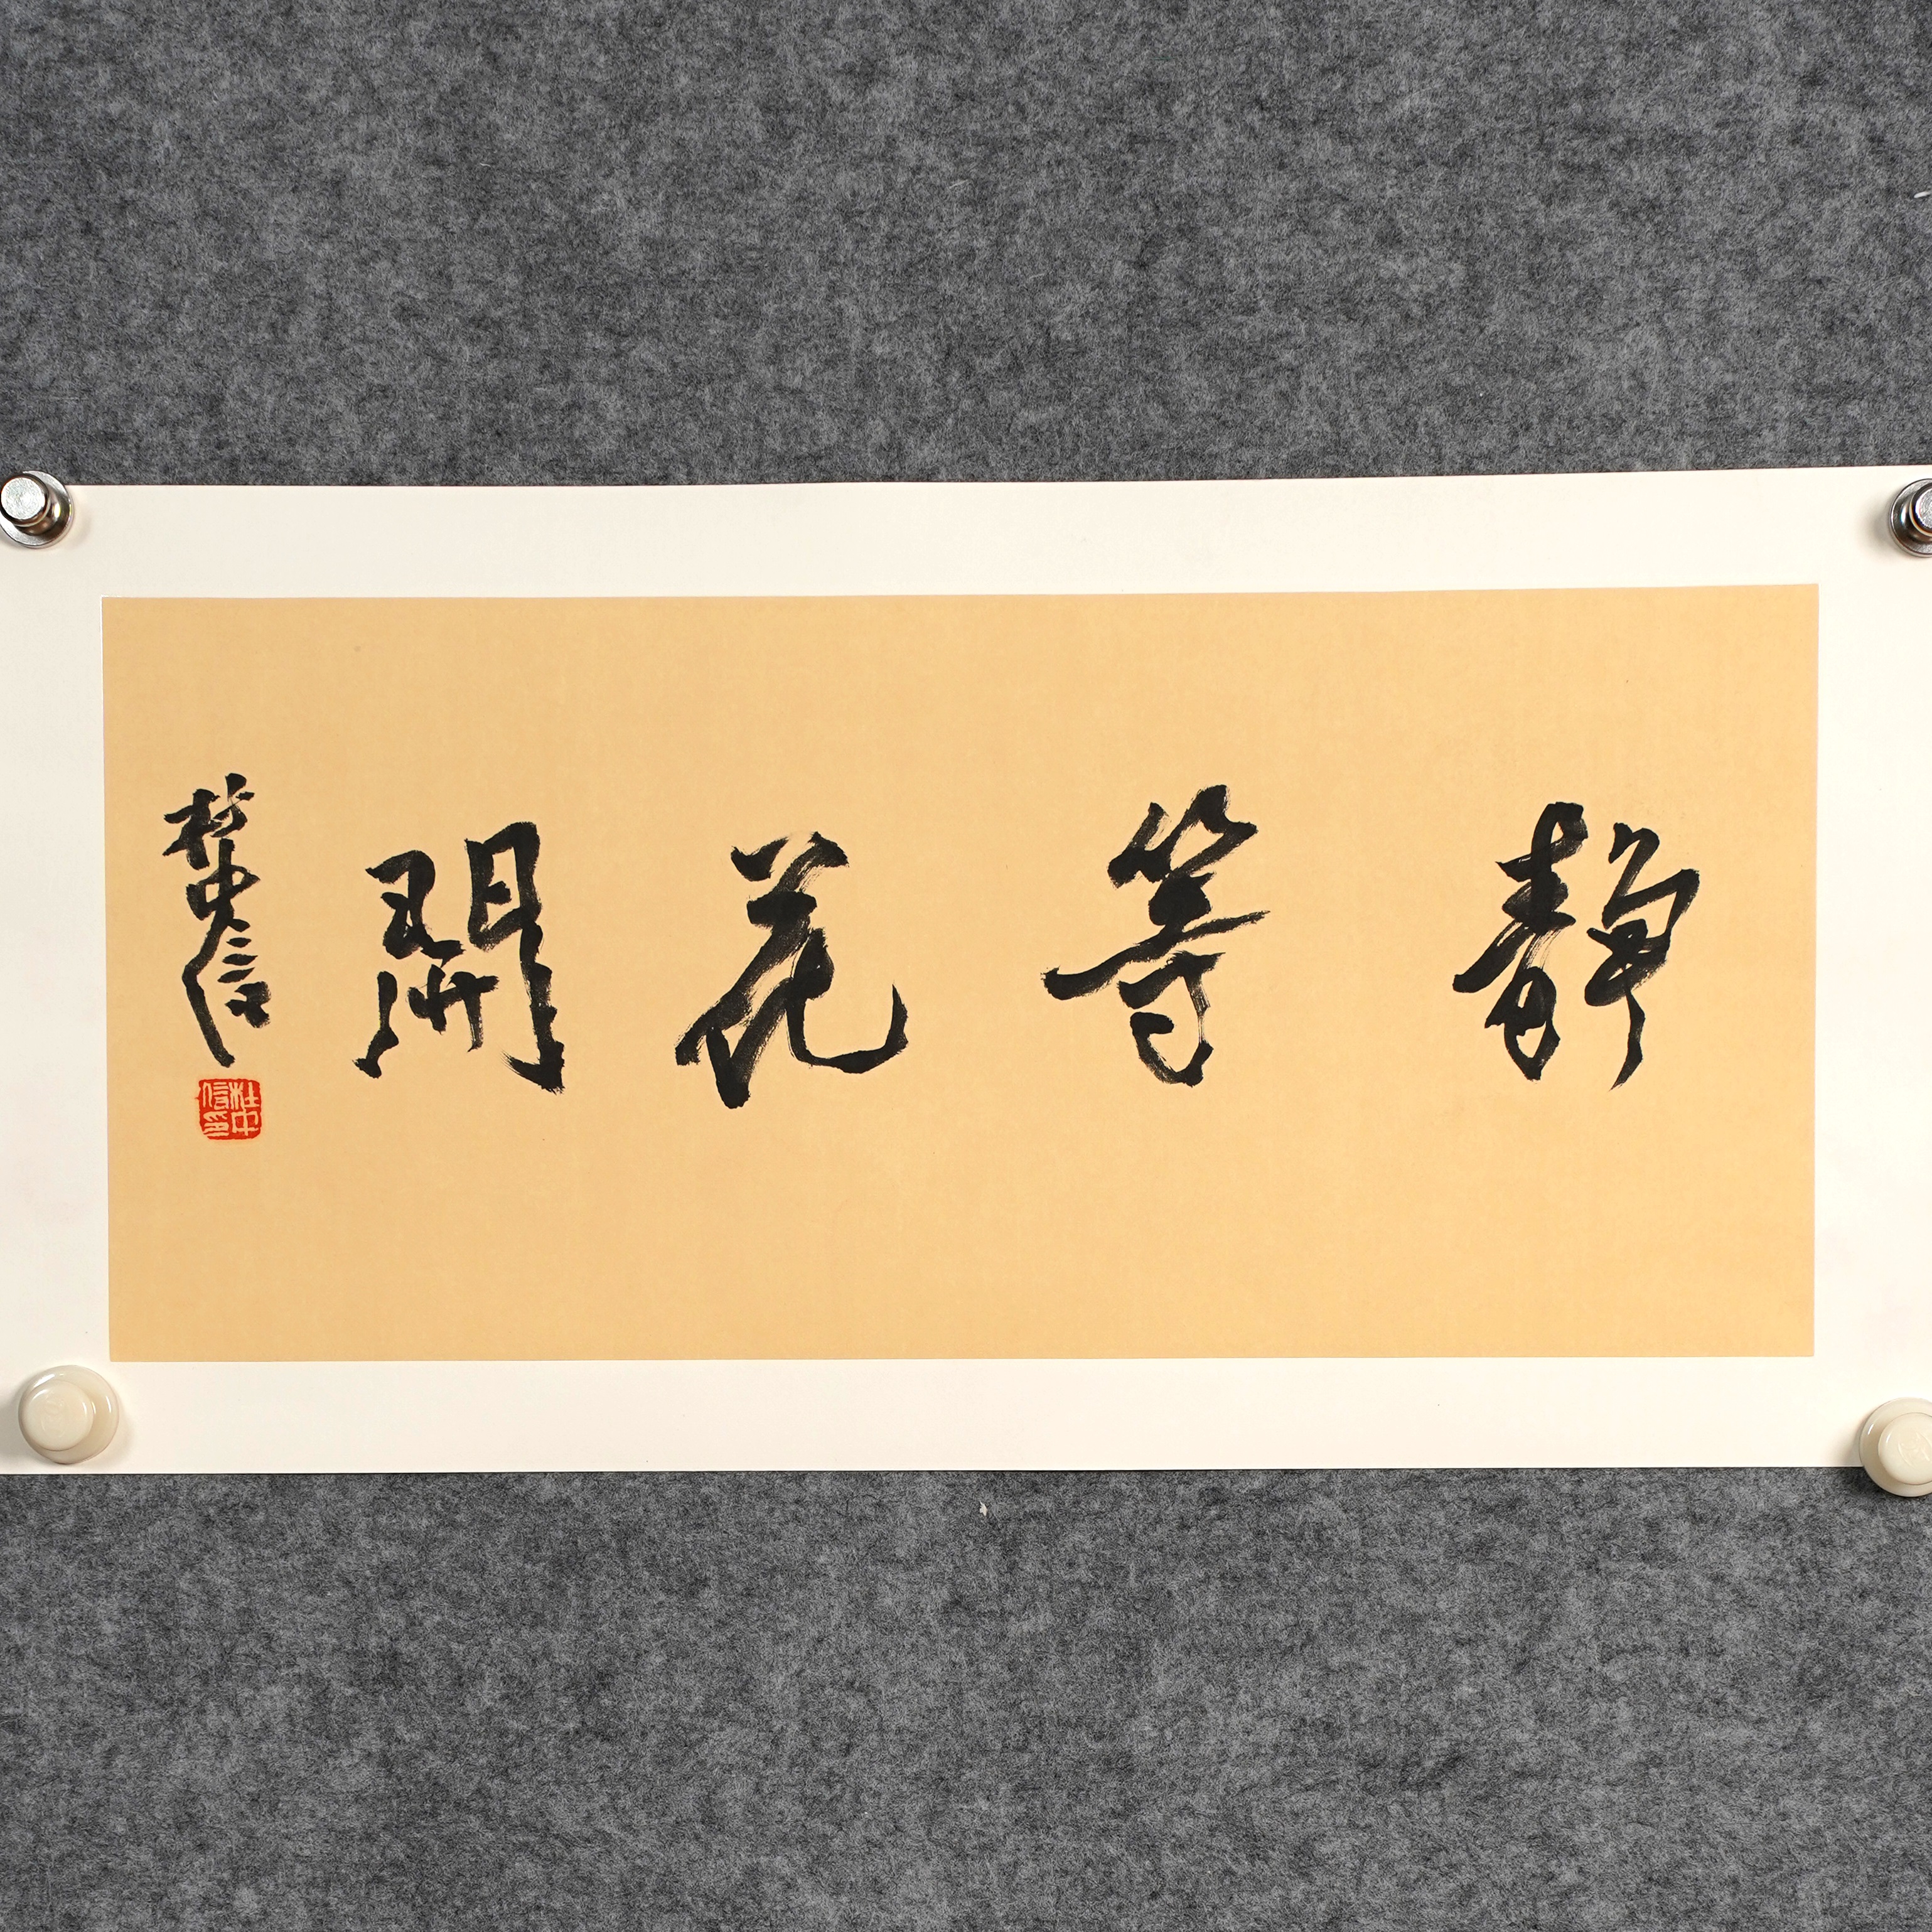 靜等花開
杜中信
杜中信印